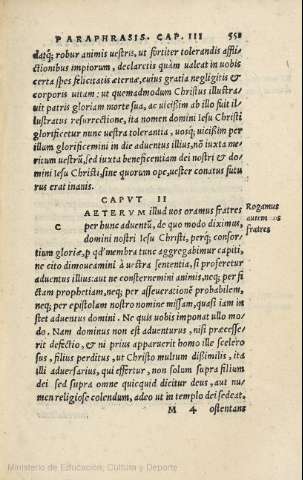 PARAPHRASIS. CAP. III 558
datq́; robur animis uestris, ut fortiter tolerandis affli
ctionibus impiorum, declaretis quàm ualeat in uobis
certa spes felicitatis æternæ, cuius gratia negligitis &
corporis uitam: ut quemadmodum Christus illustra-
uit patris gloriam morte sua, ac uicißim ab illo fuit il-
lustratus resurrectione, ita nomen domini Iesu Christi
glorificetur nunc uestra tolerantia, uosq́; uicißim per
illum glorificemini in die aduentus illius, nõ iuxta me
ritum uestrũ, sed iuxta beneficentiam dei nostri & do-
mini Iesu Christi, sine quorum ope, uester conatus futu
rus erat inanis.
CAPVT II
CAETERVM illud uos oramus fratres
per hunc aduentũ, de quo modo diximus,
domini nostri Iesu Christi, perq́; consor-
tium gloriæ, p qd' membra tunc aggregabimur capiti,
ne cito dimoueamini à uestra sententia, si proferetur
aduentus illius: aut ne consternemini animis, neq; per fi
ctam prophetiam, neq; per asseuerationẽ probabilem,
neq; per epistolam nostro nomine missam, quasi iam in
stet aduentus domini. Ne quis uobis imponat ullo mo
do. Nam dominus non est aduenturus, nisi præcesse-
rit defectio, & ni prius apparuerit homo ille scelero
sus, filius perditus, ut Christo multum dißimilis, ita
illi aduersarius, qui effertur, non solum supra filium
dei sed supra omne quicquid dicitur deus, aut nu-
men religiose colendum, adeo ut in templo dei sedeat,
M 4 ostentans
Rogamus
autem uos
fratres
Ministerio de Educación, Cultura y Deporte